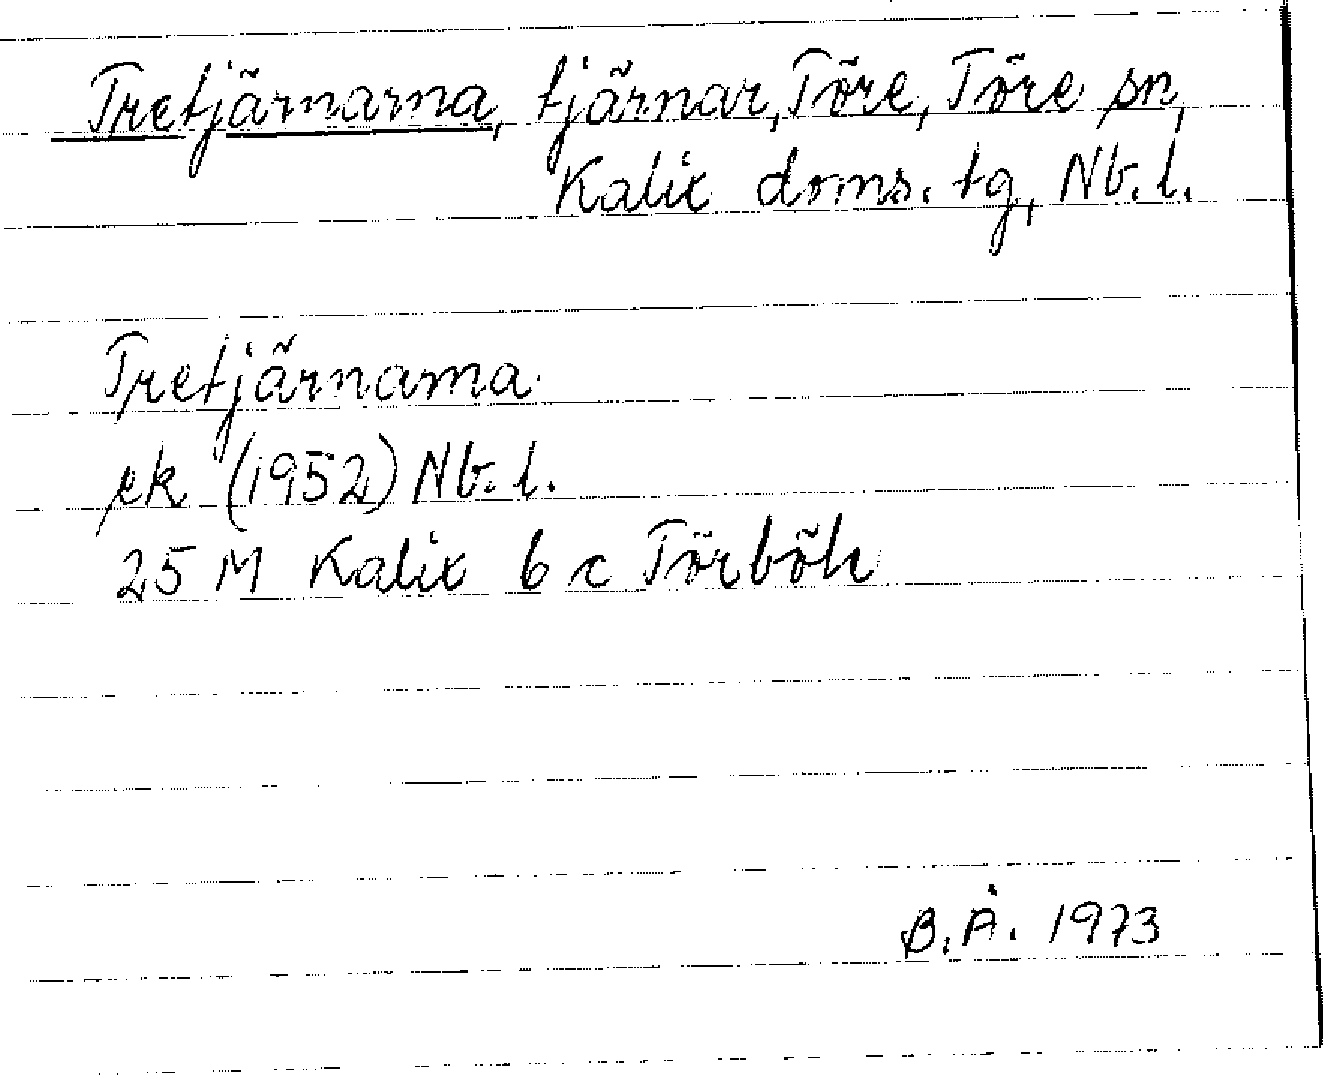 Tretjärnarna, tjärnar, Töre, Töre sn,
Kalix doms. tg, Nb. l.
Tretjärnarna
ek (1952) Nb. l.
25 M Kalix 6 c Törböle
B. Å. 1973